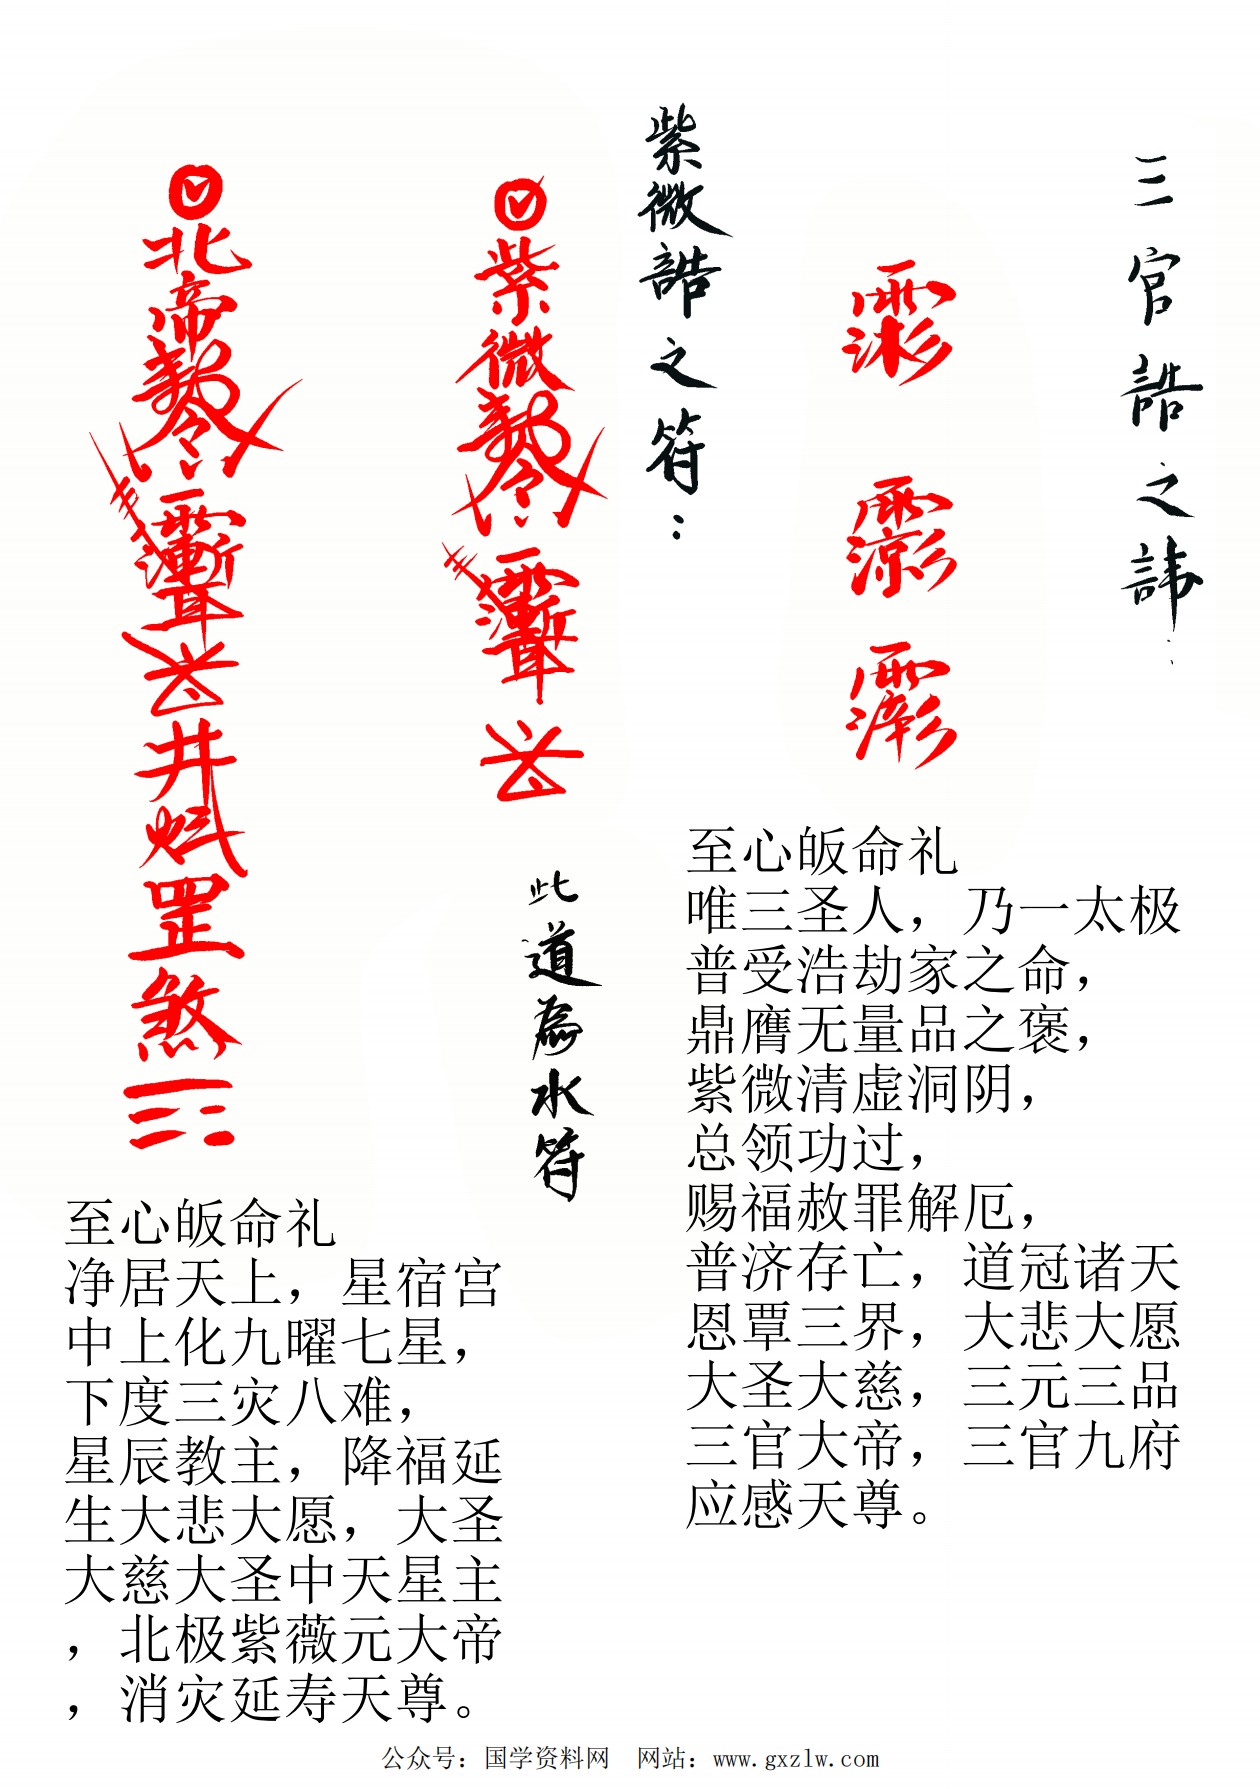 三官誥之諱：
紫微誥之符：
紫微
北帝
井
罡煞
此道為水符
至心皈命礼
唯三圣人，乃一太极
普受浩劫家之命，
鼎膺无量品之褒，
紫微清虚洞阴，
总领功过，
赐福赦罪解厄，
普济存亡，道冠诸天
恩覃三界，大悲大愿
大圣大慈，三元三品
三官大帝，三官九府
应感天尊。
至心皈命礼
净居天上，星宿宫
中上化九曜七星，
下度三灾八难，
星辰教主，降福延
生大悲大愿，大圣
大慈大圣中天星主
，北极紫薇元大帝
，消灾延寿天尊。
公众号：国学资料网 网站：www.gxzlw.com